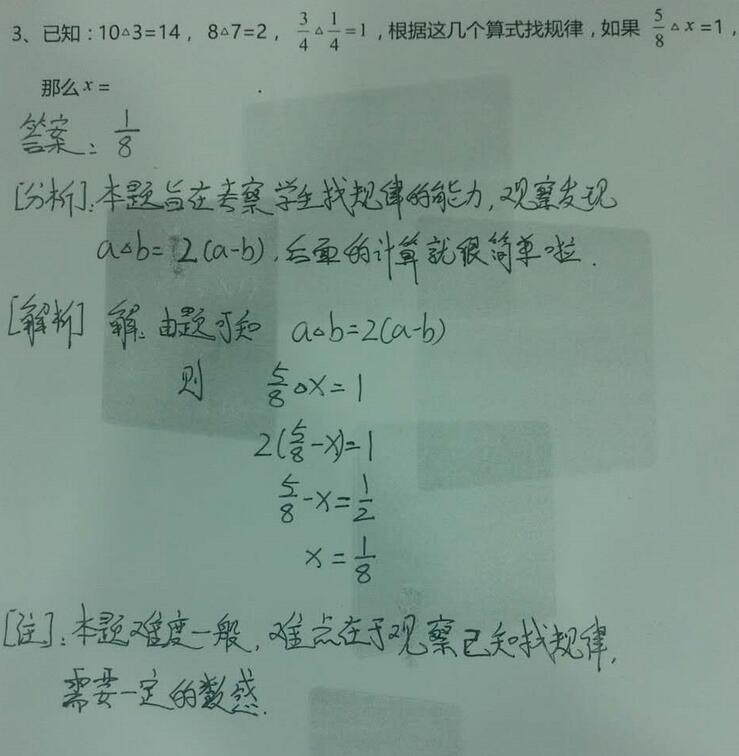 3、已知：10△3=14，8△7=2，3/4△1/4=1，根据这几个算式找规律，如果 5/8△x=1，
那么x=
答案：1/8
[分析]：本题旨在考察学生找规律的能力，观察发现
a△b=2(a-b)，后面的计算就很简单啦.
[解析] 解：由题可知 a△b=2(a-b)
则 5/8△x=1
2(5/8-x)=1
5/8-x=1/2
x=1/8
[注]：本题难度一般，难点在于观察已知找规律，
需要一定的数感.